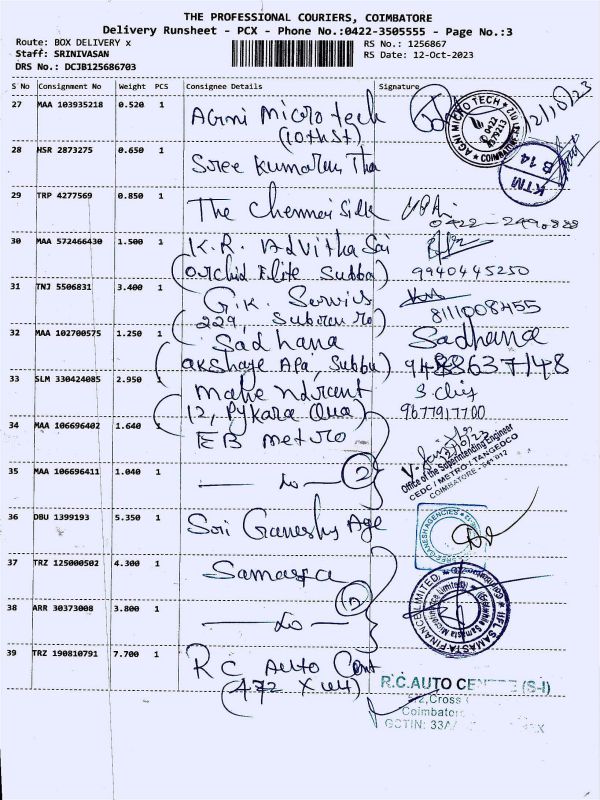 THE PROFESSIONAL COURIERS, COIMBATORE
Delivery Runsheet - PCX - Phone No.:0422-3505555 - Page No.:3
Route: BOX DELIVERY x
RS No.: 1256867
Staff: SRINIVASAN
RS Date: 12-Oct-2023
DRS No.: DCJB125686703
S No Consignment No Weight PCS Consignee Details Signature
27 MAA 103935218 0.520 1 Agni Micro tech
(10th St)
AGNI MICRO TECH
COIMBATORE
2/10/23
28 HSR 2873275 0.650 1 Sree Kumaran Tha
KTM
B 14
29 TRP 4277569 0.850 1 The Chennai Silk
30 MAA 572466430 1.500 1 K.R. Advitha Sai
(Orchid Elite Subba) 9940445250
31 TNJ 5506831 3.400 1 G.K. Servis
(229, 8111008455
32 MAA 102700575 1.250 1 Sadhana Sadhana
(akshaya Apa, Subbu)
33 SLM 330424085 2.950 1
(12, Pykara 9677917700
34 MAA 106696402 1.640 1 EB metro
Office of the Superintending Engineer
CEDC / METRO / TANGEDCO
COIMBATORE - 641 012
35 MAA 106696411 1.040 1 — do — 2
36 DBU 1399193 5.350 1 Sri Ganesh Age
SREE GANESH AGENCIES
37 TRZ 125000502 4.300 1 Samasta
IIFL SAMASTA FINANCE LIMITED
38 ARR 30373008 3.800 1 — do —
39 TRZ 190810791 7.700 1 R C Auto Cent
(472 X cut)
R.C.AUTO CE (S-I)
2,Cross
Coimbator
GCTIN: 33A